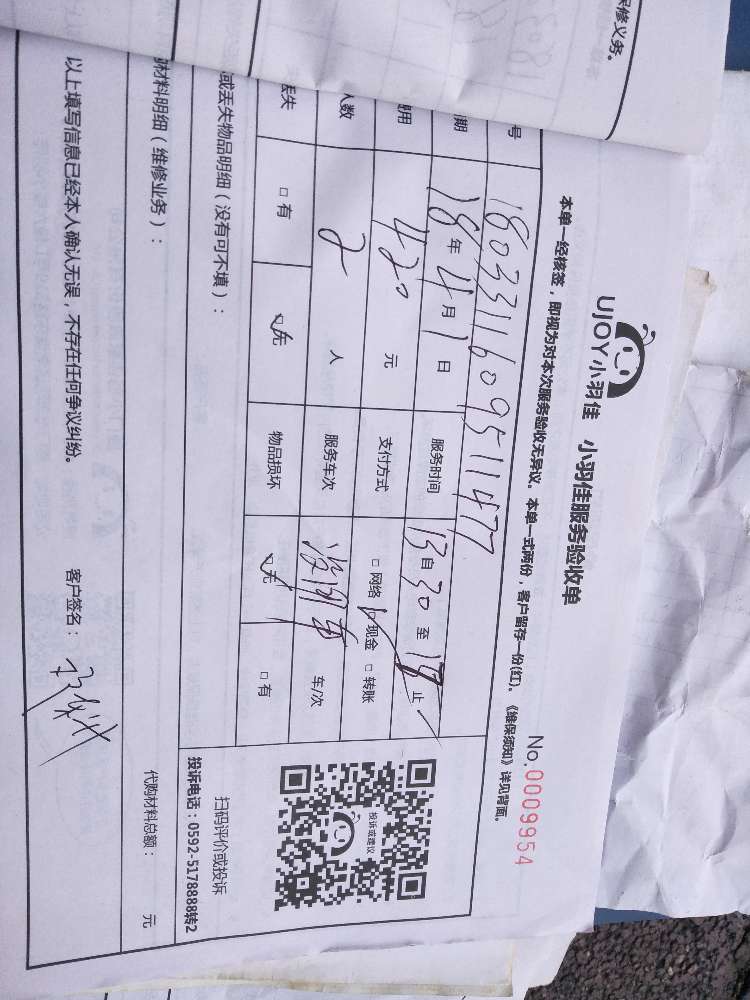 保修义务。
UJOY小羽佳 小羽佳服务验收单
No.0009954
本单一经核签，即视为对本次服务验收无异议。本单一式两份，客户留存一份(红)。《维保须知》详见背面。
号 180331160951147
期 18年4月1日 服务时间 自13 30至18止
用 420元 支付方式 □网络 ☑现金 □转账
人数 2人 服务车次 车/次
丢失 □有 ☑无 物品损坏 ☑无 □有
或丢失物品明细（没有可不填）：
投诉或建议
扫码评价或投诉
投诉电话：0592-5178888转2
材料明细（维修业务）：
代购材料总额： 元
以上填写信息已经本人确认无误，不存在任何争议纠纷。 客户签名：